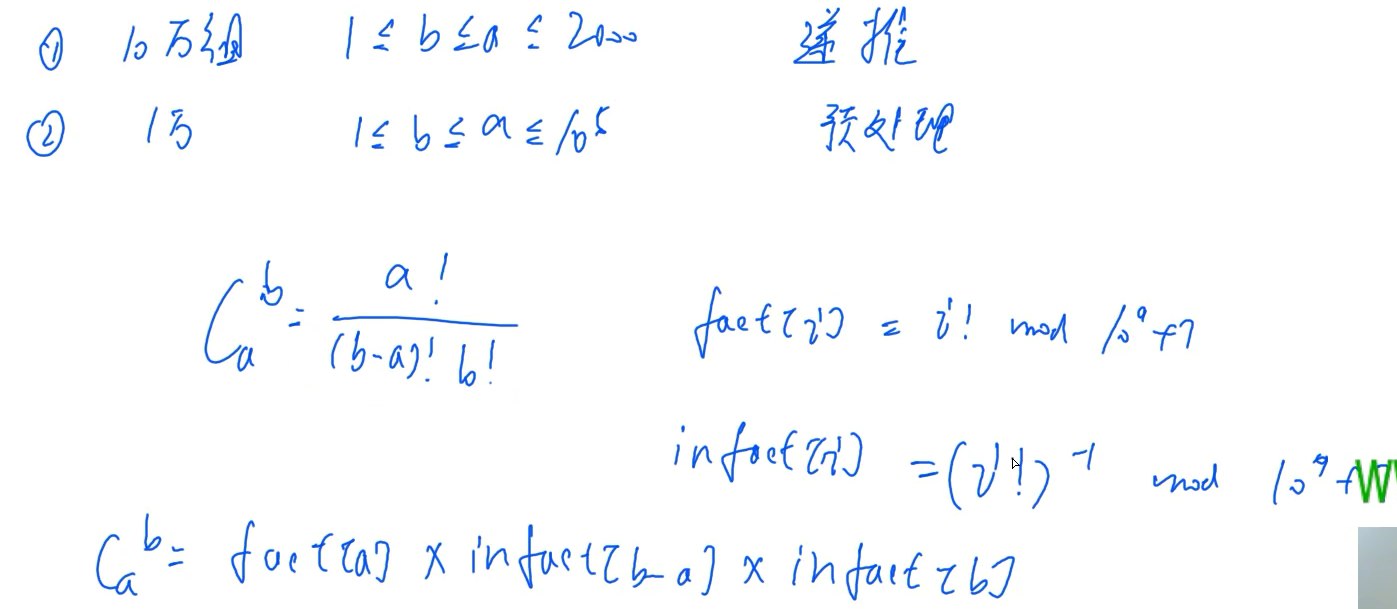 ① 10万组 1 ≤ b ≤ a ≤ 2000 递推
② 1万 1 ≤ b ≤ a ≤ 10^5 预处理
C_a^b = a! / (b-a)! b!
fact[i] = i! mod 10^9+7
infact[i] = (i!)^-1 mod 10^9+
C_a^b = fact[a] × infact[b-a] × infact[b]